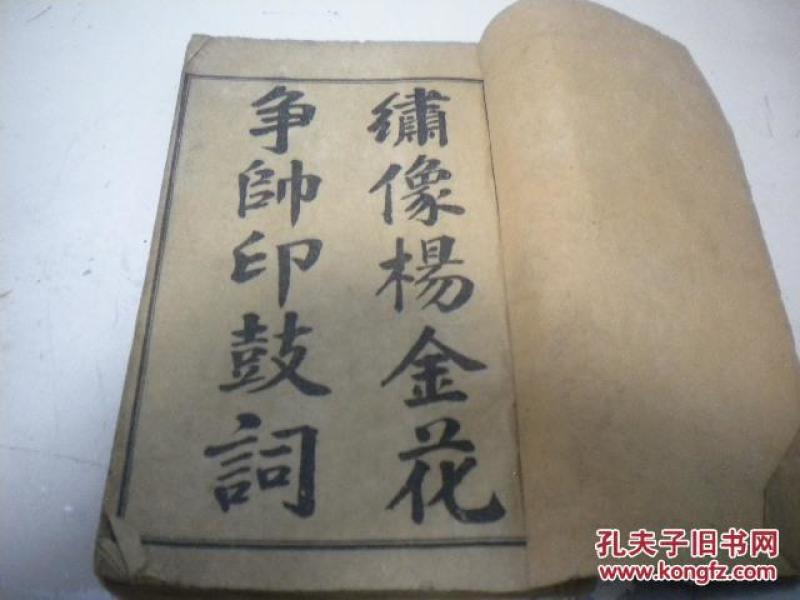 繡像楊金花
争帥印鼓詞
孔夫子旧书网
www.kongfz.com